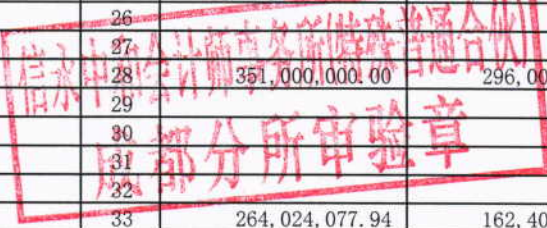 26
27
28 351,000,000.00 296,00
29
30
31
32
33 264,024,077.94 162,40
信永中和会计师事务所(特殊普通合伙)
成都分所审验章